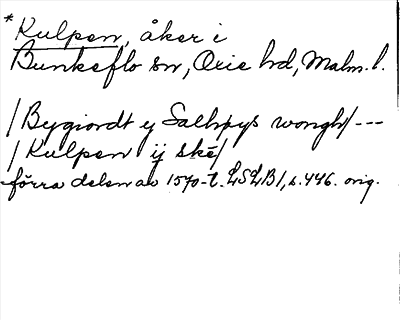 *Kulpen, åker i
Bunkeflo sn, Oxie hd, Malm. l.
/Bygiordt ÿ Salhpys wongh/ ---
/Kulpen ÿ skē/
förra delen av 1570-t. LSLB1, s. 446. orig.